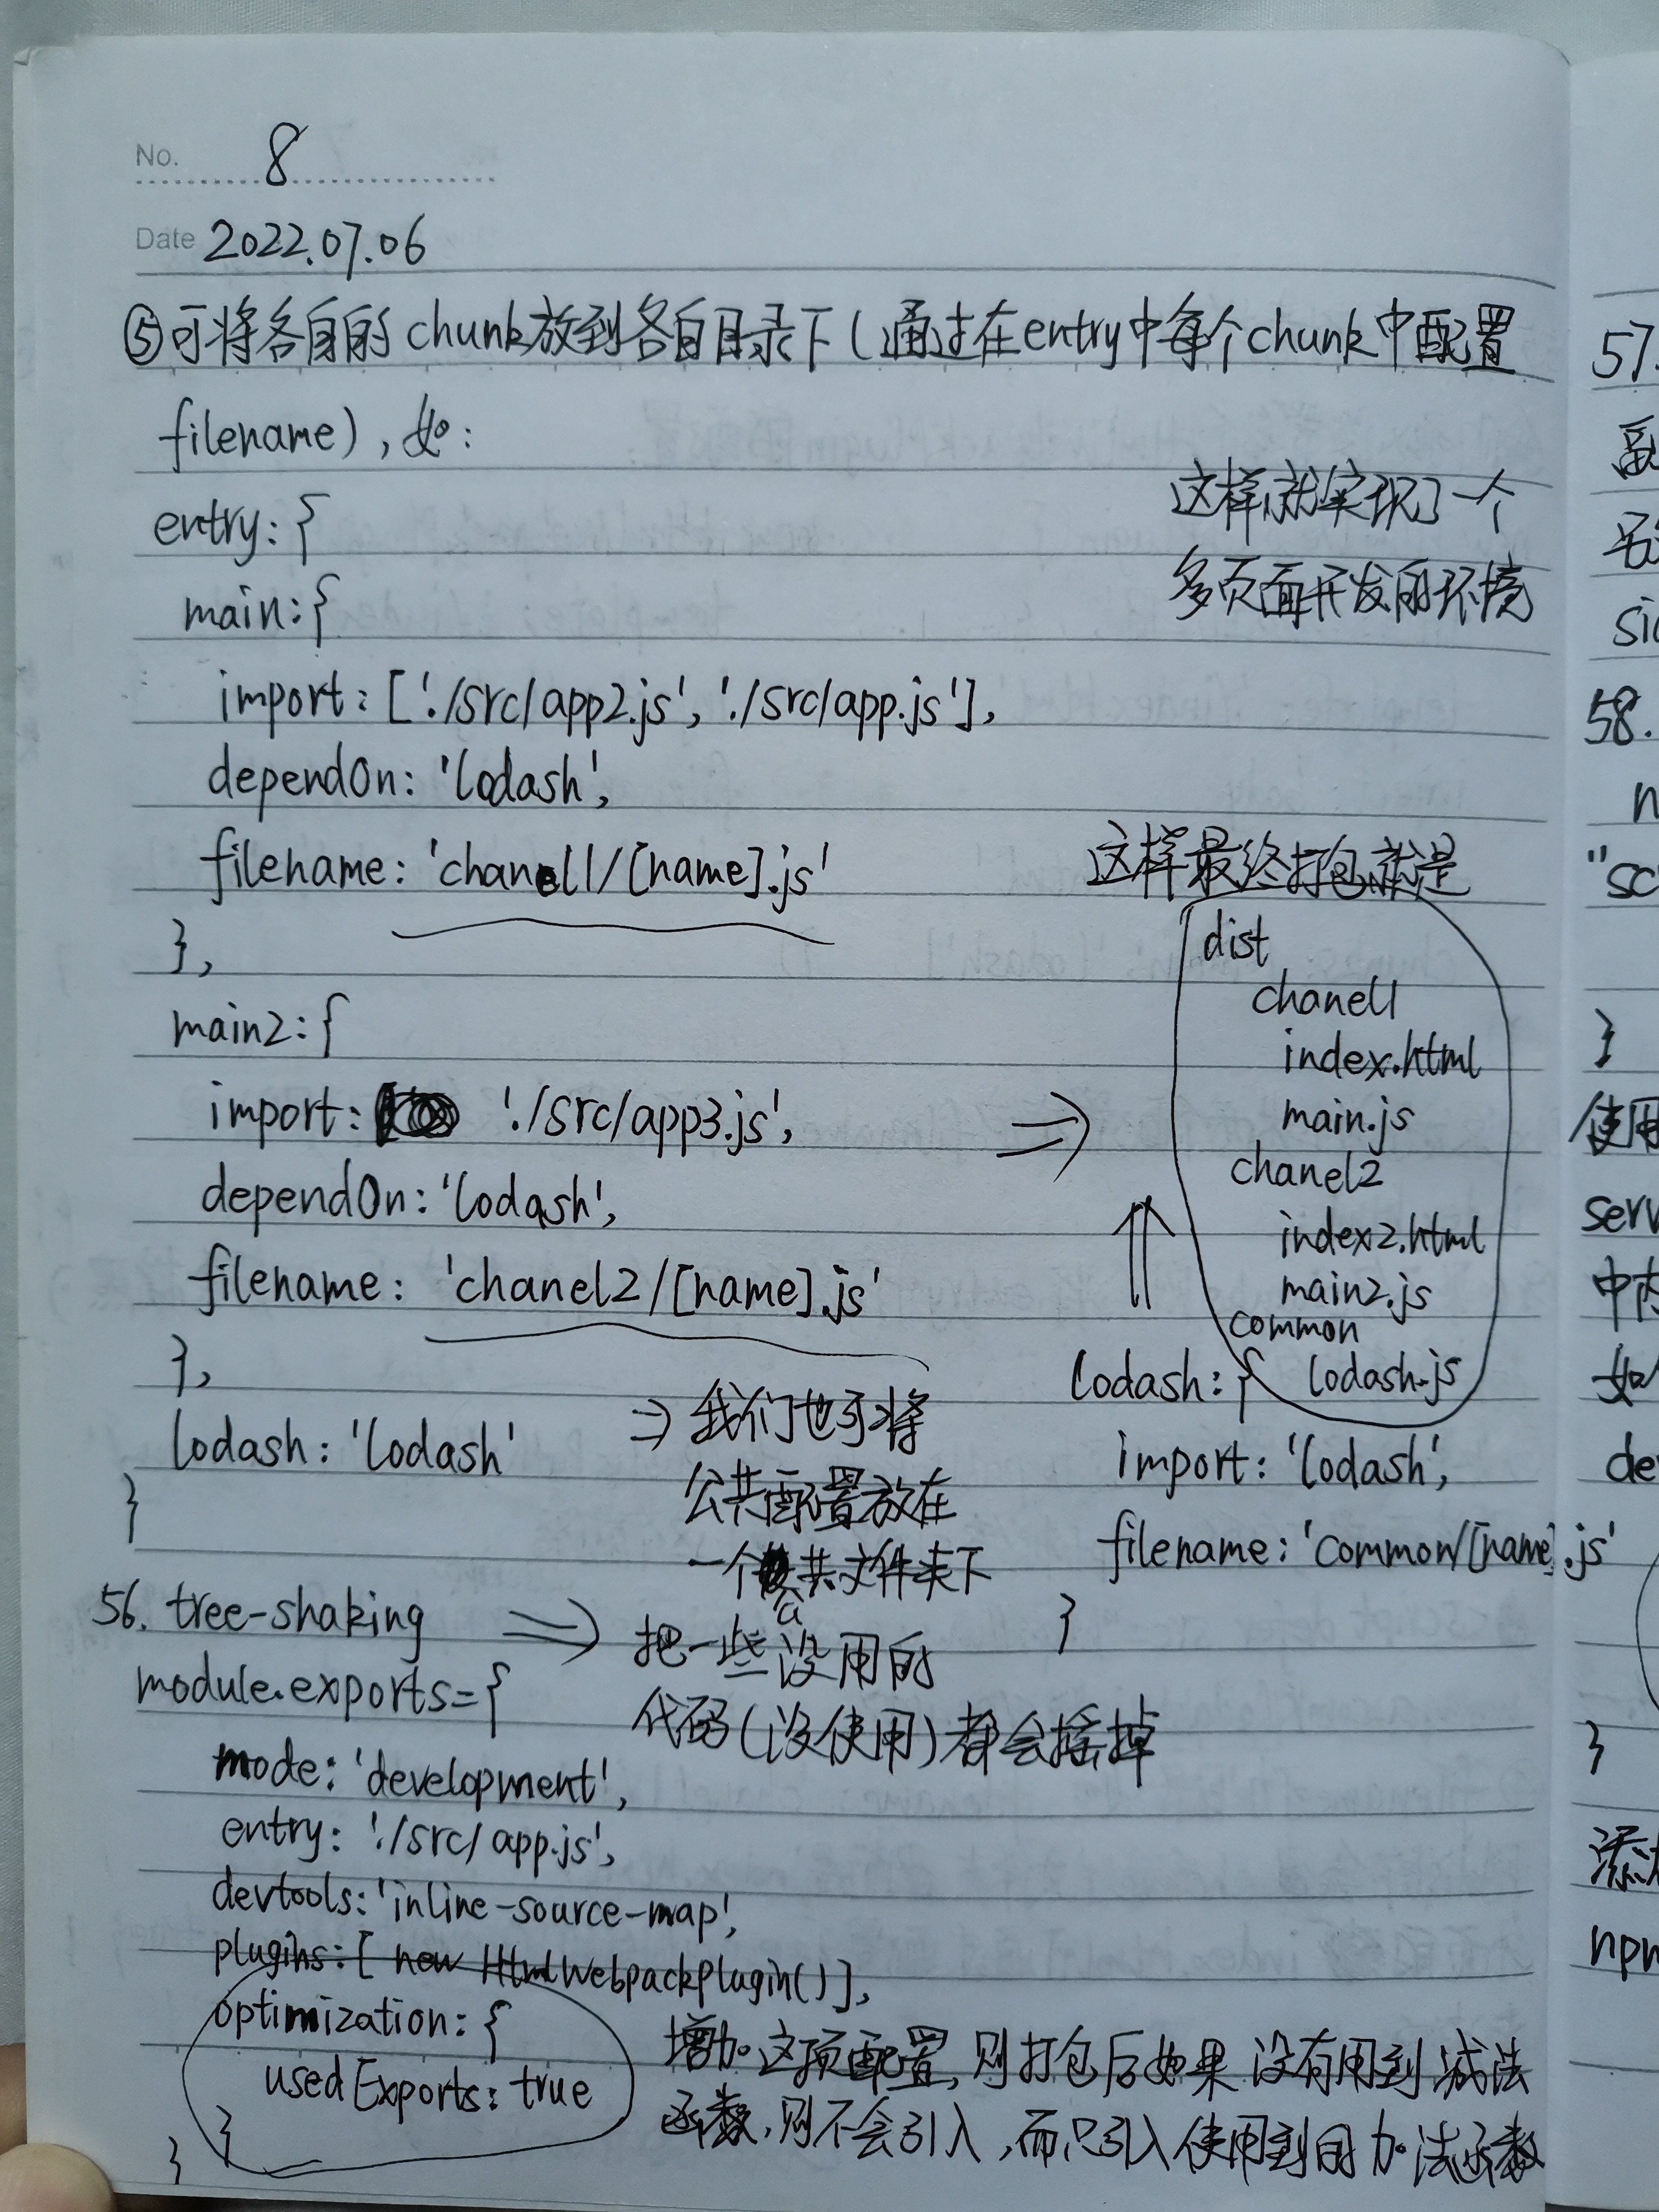 No. 8
Date 2022.07.06
⑤可将各自的chunk放到各自目录下(通过在entry中每个chunk中配置
filename),如:
entry:{
main:{
import:['./src/app2.js','./src/app.js'],
dependOn:'lodash',
filename:'chanel1/[name].js'
},
main2:{
import: './src/app3.js',
dependOn:'lodash',
filename:'chanel2/[name].js'
},
lodash:'lodash'
}
这样就实现了一个
多页面开发的环境
⇒
这样最终打包就是
dist
chanel1
index.html
main.js
chanel2
index2.html
main2.js
common
lodash.js
⇒我们也可将
公共配置放在
一个公共文件夹下
lodash:{
import:'lodash',
filename:'common/[name].js'
}
56. tree-shaking ⇒ 把一些没用的
代码(没使用)都会摇掉
module.exports={
mode:'development',
entry:'./src/app.js',
devtools:'inline-source-map',
plugins:[new HtmlWebpackPlugin()],
optimization:{
usedExports:true
}
}
增加这项配置,则打包后如果没有用到减法
函数,则不会引入,而只引入使用到的加法函数
57.
58.
n
"sc
}
使用
serv
中内
如
de
}
添加
npm